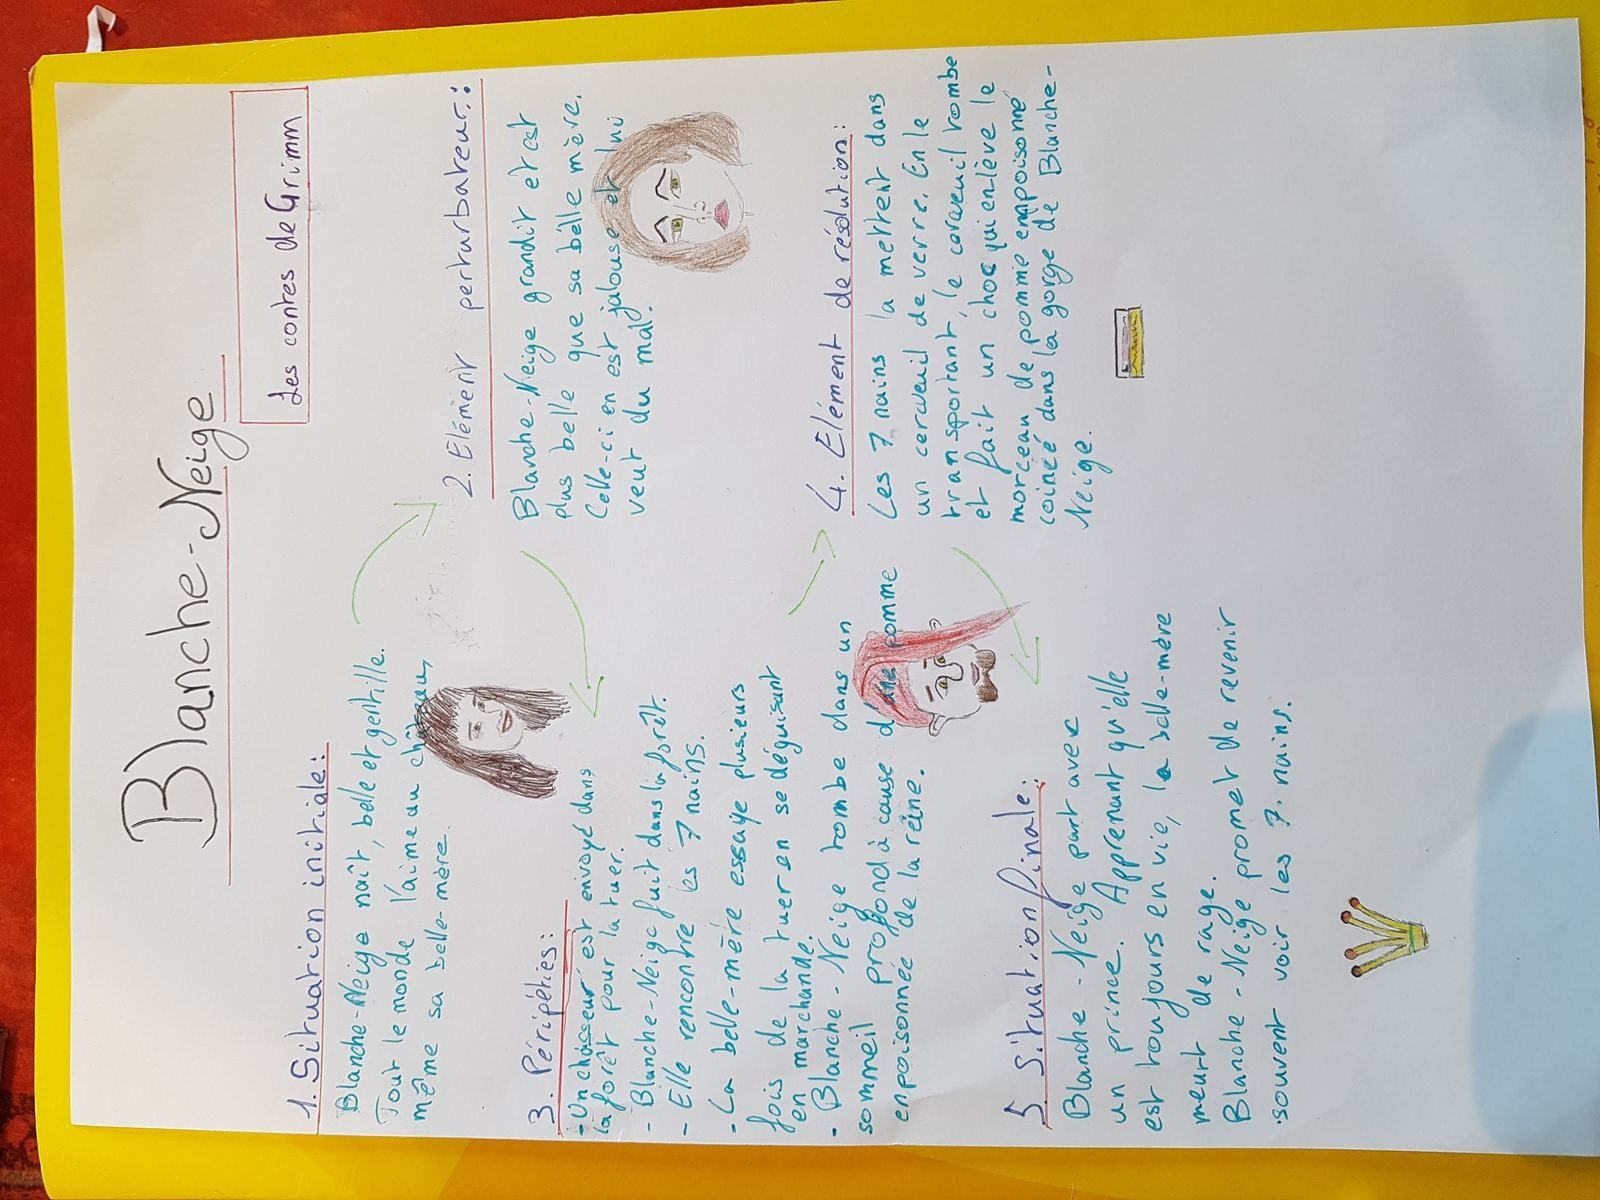 Blanche-Neige
Les contes de Grimm
1. Situation initiale:
Blanche-Neige naît, belle et gentille.
Tout le monde l'aime au château,
même sa belle-mère.
2. Elément perturbateur:
Blanche-Neige grandit et est
plus belle que sa bèlle mère.
Celle-ci en est jalouse et lui
veut du mal.
3. Péripéties:
- Un chasseur est envoyé dans
la forêt pour la tuer.
- Blanche-Neige fuit dans la forêt.
- Elle rencontre les 7 nains.
- La belle-mère essaye plusieurs
fois de la tuer en se déguisant
en marchande.
- Blanche-Neige tombe dans un
sommeil profond à cause d'une pomme
enpoisonnée de la reine.
4. Elément de résolution:
Les 7 nains la mettent dans
un cerceuil de verre. En le
transportant, le cerceuil tombe
et fait un choc qui enlève le
morceau de pomme empoisonné
coincé dans la gorge de Blanche-
Neige.
5 Situation finale:
Blanche-Neige part avec
un prince. Apprenant qu'elle
est toujours en vie, la belle-mère
meurt de rage.
Blanche-Neige promet de revenir
souvent voir les 7 nains.